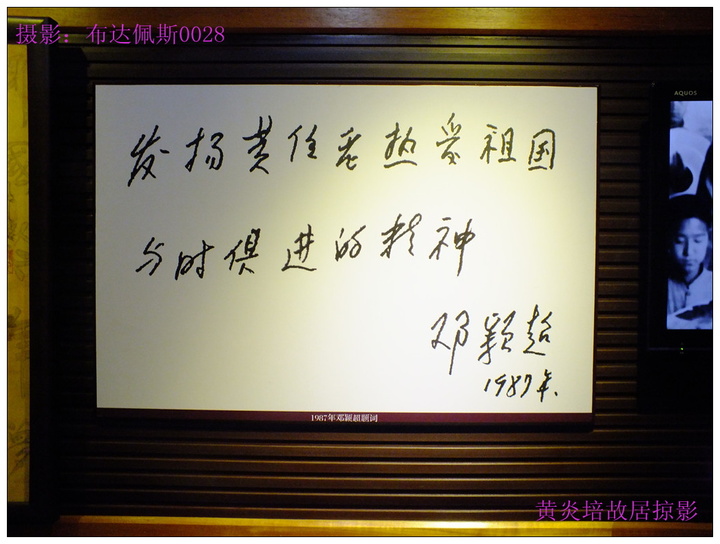 摄影：布达佩斯0028
AQUOS
发扬黄任老热爱祖国
与时俱进的精神
邓颖超
1987年.
1987年邓颖超题词
黄炎培故居掠影